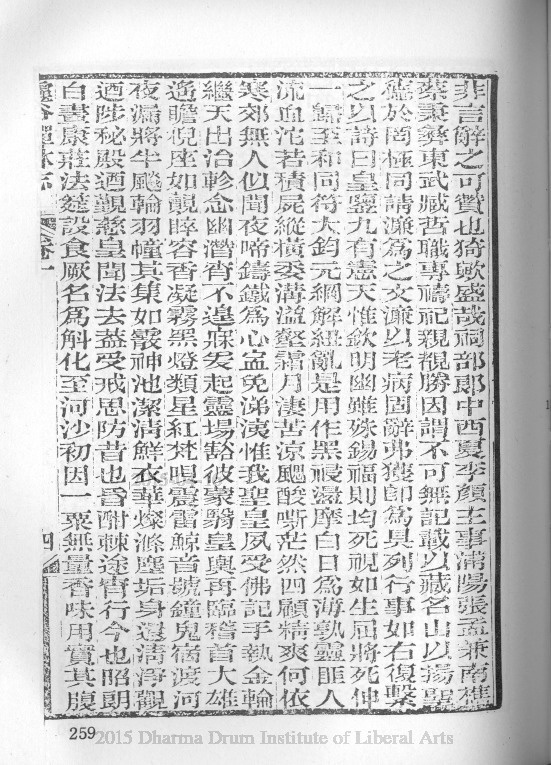 非言辭之可贊也猗歟盛哉祠部郎中西夏李顏主事浦陽張孟兼南樵
蔡秉彝東武臧哲職專禱祀親覩勝因謂不可無記載以藏名山以揚聖
德於罔極同請濂爲之文濂以老病固辭弗獲卽爲具列行事如右復繫
之以詩曰皇鑒九有憲天惟欽明幽雖殊錫福則均死視如生屈將死伸
一歸至和同符大鈞元綱解紐亂是用作黑祲盪摩白日爲薄孰靈匪人
流血沱若積屍縱橫委溝溢壑霜月淒苦涼飈酸嘶茫然四顧精爽何依
寒郊無人似聞夜啼鑄鐵爲心寧免涕洟惟我聖皇夙受佛記手執金輪
繼天出治軫念幽潛宵不遑寐爰起靈場豁彼蒙翳皇輿再臨稽首大雄
遙瞻猊座如覲睟容香凝霧黑燈類星紅梵唄震雷鯨音號鐘鬼宿渡河
夜漏將半飈輪羽幢其集如霰神池潔清鮮衣華燦滌塵垢身還清淨觀
迺陟祕殿迺覲慈皇聞法去蓋受戒思防昔也昏酣棘途宵行今也昭朗
白晝康莊法筵設食厥名爲斛化至河沙初因一粟無量香味用實其腹
靈谷禪林志 卷一 四
259
2015 Dharma Drum Institute of Liberal Arts